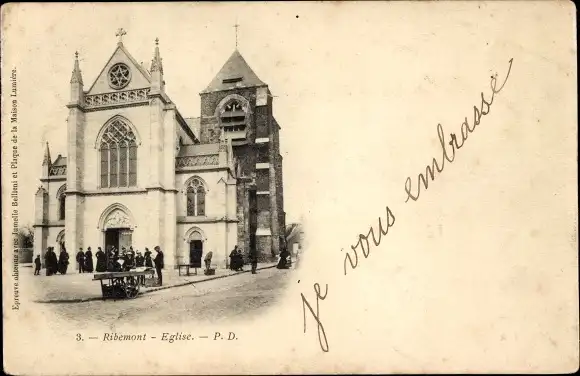 Epreuve obtenue avec Jumelle Bellieni et Plaque de la Maison Lumière.
3. — Ribemont - Eglise. — P. D.
je vous embrasse